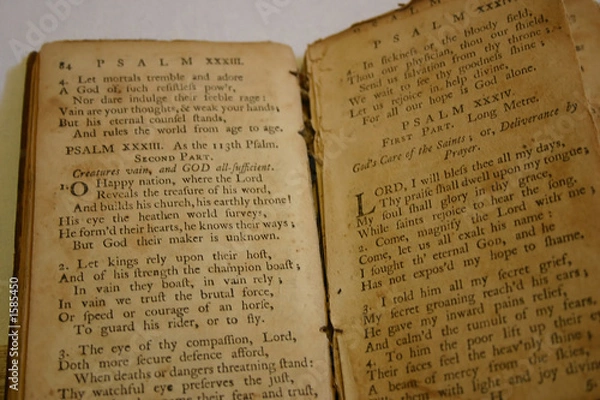 84 PSALM XXXIII.
4. Let mortals tremble and adore
A God of ſuch reſiſtleſs pow'r,
Nor dare indulge their feeble rage:
Vain are your thoughts, & weak your hands,
But his eternal counſel ſtands,
And rules the world from age to age.
PSALM XXXIII. As the 113th Pſalm.
SECOND PART.
Creatures vain, and GOD all-ſufficient.
1. O Happy nation, where the Lord
Reveals the treaſure of his word,
And builds his church, his earthly throne!
His eye the heathen world ſurveys,
He form'd their hearts, he knows their ways;
But God their maker is unknown.
2. Let kings rely upon their hoſt,
And of his ſtrength the champion boaſt;
In vain they boaſt, in vain rely;
In vain we truſt the brutal force,
Or ſpeed or courage of an horſe,
To guard his rider, or to fly.
3. The eye of thy compaſſion, Lord,
Doth more ſecure defence afford,
When deaths or dangers threatning ſtand:
Thy watchful eye preſerves the juſt,
name their fear and truſt,
PSALM XXXIV.
In ſickneſs or the bloody field,
Thou our phyſician, thou our ſhield,
Send us ſalvation from thy throne;
We wait to ſee thy goodneſs ſhine;
Let us rejoice in help divine,
For all our hope is God alone.
PSALM XXXIV.
FIRST PART. Long Metre.
God's Care of the Saints; or, Deliverance by
Prayer.
LORD, I will bleſs thee all my days,
Thy praiſe ſhall dwell upon my tongue;
My ſoul ſhall glory in thy grace,
While ſaints rejoice to hear the ſong.
2. Come, magnify the Lord with me;
Come, let us all exalt his name:
I ſought th' eternal God, and he
Has not expos'd my hope to ſhame.
3. I told him all my ſecret grief,
My ſecret groaning reach'd his ears;
He gave my inward pains relief,
And calm'd the tumult of my fears.
4. To him the poor lift up their eyes
Their faces feel the heav'nly ſhine;
A beam of mercy from the ſkies,
them with light and joy divine
H 5.
Adobe Stock | #1585450